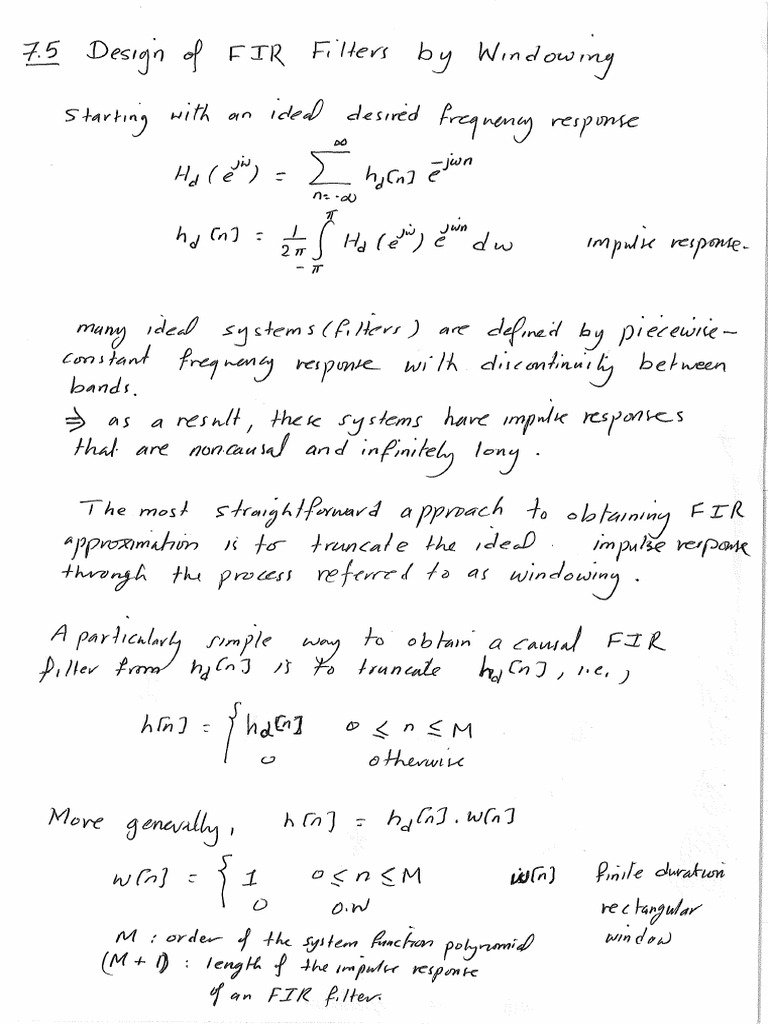 7.5 Design of FIR Filters by Windowing
Starting with an ideal desired frequency response
H_d(e^{jω}) = ∑_{n=-∞}^{∞} h_d[n] e^{-jωn}
h_d[n] = 1/2π ∫_{-π}^{π} H_d(e^{jω}) e^{jωn} dω impulse response.
many ideal systems (filters) are defined by piecewise-
constant frequency response with discontinuity between
bands.
⇒ as a result, these systems have impulse responses
that are noncausal and infinitely long.
The most straightforward approach to obtaining FIR
approximation is to truncate the ideal impulse response
through the process referred to as windowing.
A particularly simple way to obtain a causal FIR
filter from h_d[n] is to truncate h_d[n], i.e.,
h[n] = { h_d[n] 0 ≤ n ≤ M
0 otherwise
More generally, h[n] = h_d[n].w[n]
w[n] = { 1 0 ≤ n ≤ M w[n] finite duration
0 o.w rectangular
window
M : order of the system function polynomial
(M + 1) : length of the impulse response
of an FIR filter.